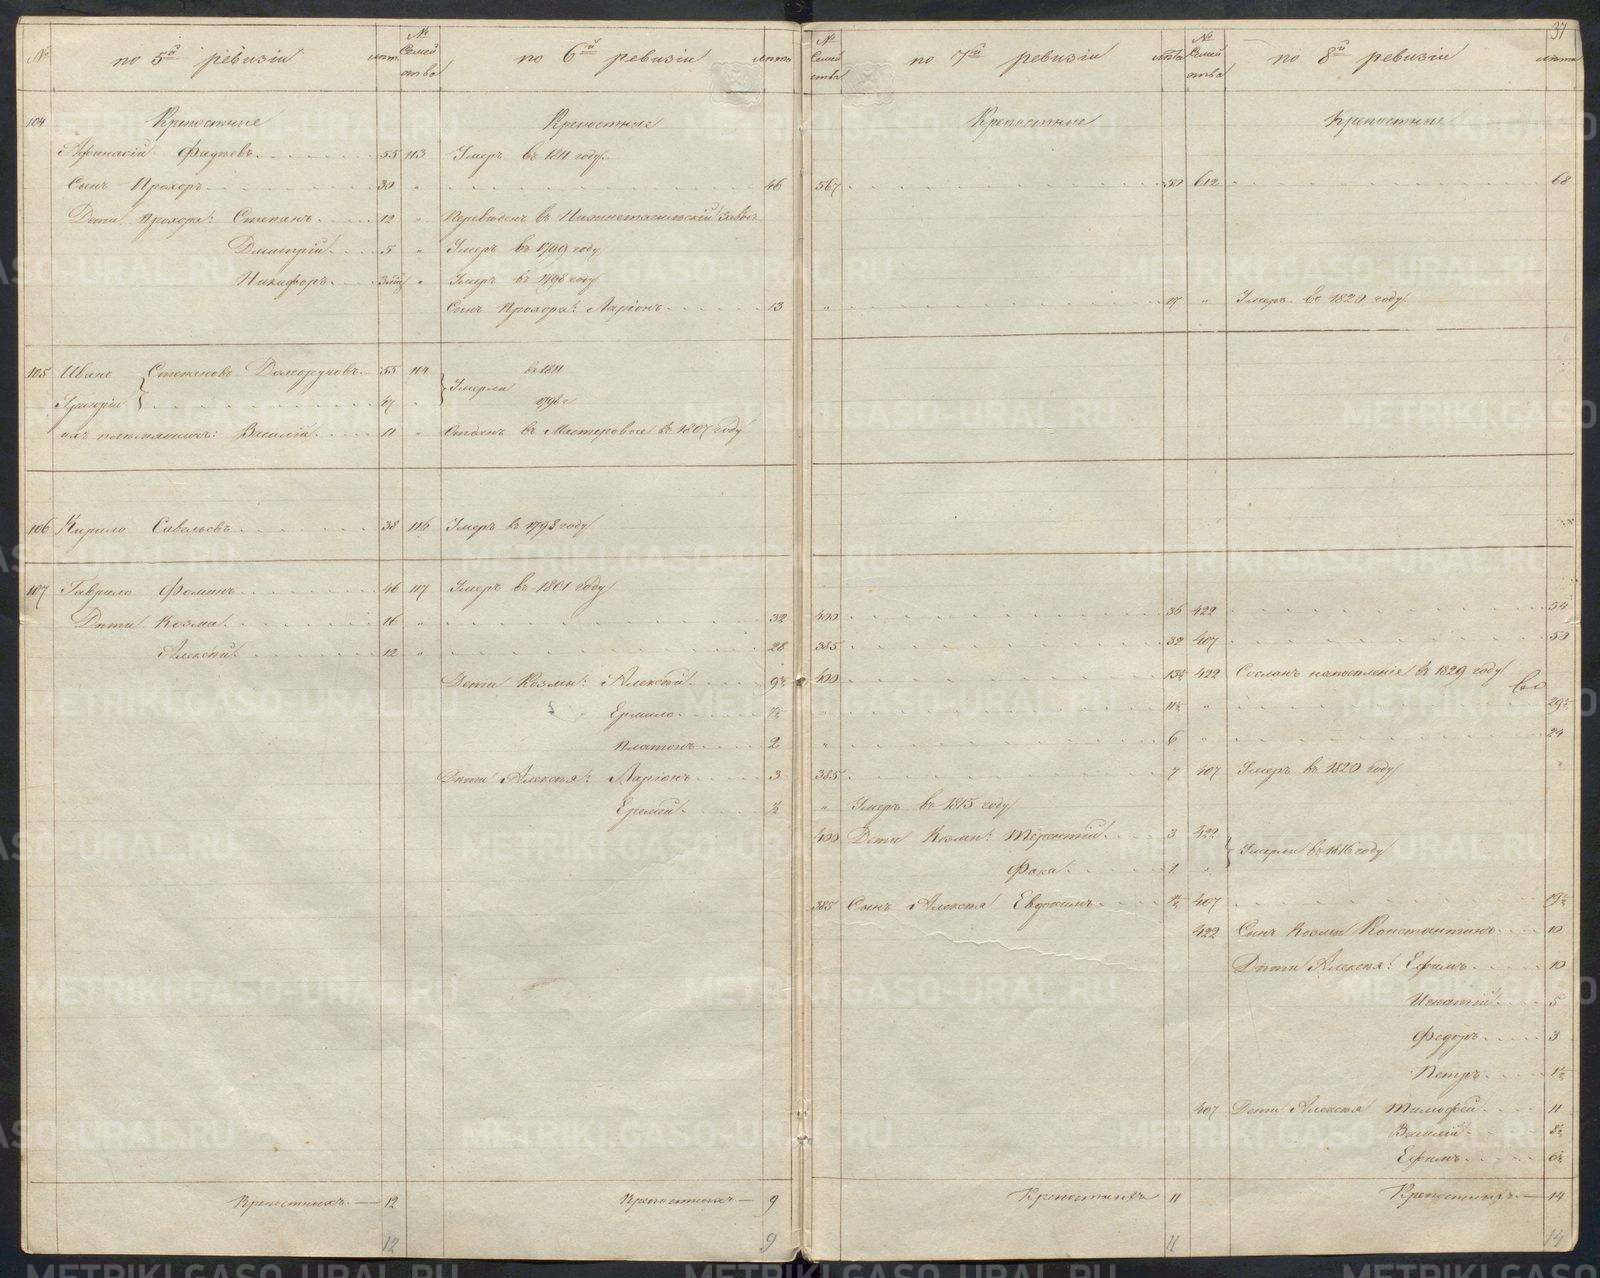 37
№ по 5й ревизіи лѣтъ № Семейства по 6й ревизіи лѣта № Семейства по 7й ревизіи лѣта № Семейства по 8й ревизіи лѣта
104 Крепостные Крепостные Крепостные Крепостные
Афанасій Фадѣевъ 55 113 Умеръ въ 1811 году
Сынъ Прохоръ 30 „ 46 567 50 612 68
Дѣти Прохора: Степанъ 12 „ Переведенъ въ Нижнетагильскій Завод
Дмитрій 5 „ Умеръ въ 1799 году
Никифоръ „ Умеръ въ 1798 году
Сынъ Прохора: Ларіонъ 13 „ 17 „ Умеръ въ 1820 году
105 Иванъ Степановъ Долгоруковъ 55 114 Умерли въ 1811
Григорій 47 „ 1798 г
ихъ племянникъ: Василій 11 „ Отданъ въ Мастеровые въ 1807 году
106 Кирило Савельевъ 38 116 Умеръ въ 1798 году
107 Гаврило Фоминъ 46 117 Умеръ въ 1801 году
Дѣти Козма 16 „ 32 400 36 422 54
Алексѣй 12 „ 28 385 32 407 50
Дѣти Козмы: Алексѣй 9½ 400 13½ 422 Сосланъ на поселеніе въ 1829 году
Ермило 7½ „ 11½ „ 29½
Платонъ 2 „ 6 „ 24
Дѣти Алексѣя: Ларіонъ 3 385 7 407 Умеръ въ 1820 году
Еремей ½ „ Умеръ въ 1815 году
400 Дѣти Козмы: Терентій 3 422 Умерли въ 1816 году
Фока 1 „
385 Сынъ Алексѣя Евдокимъ 1½ 407 19½
422 Сынъ Козмы Константинъ 10
Дѣти Алексѣя: Ефимъ 10
Игнатій 5
Федоръ 3
Петръ 1½
407 Дѣти Алексѣя Тимофей 11
Василій 8½
Ефимъ 6½
Крепостныхъ 12 Крепостныхъ 9 Крепостныхъ 11 Крепостныхъ 14
12 9 11 14
METRIKI.GASO-URAL.RU